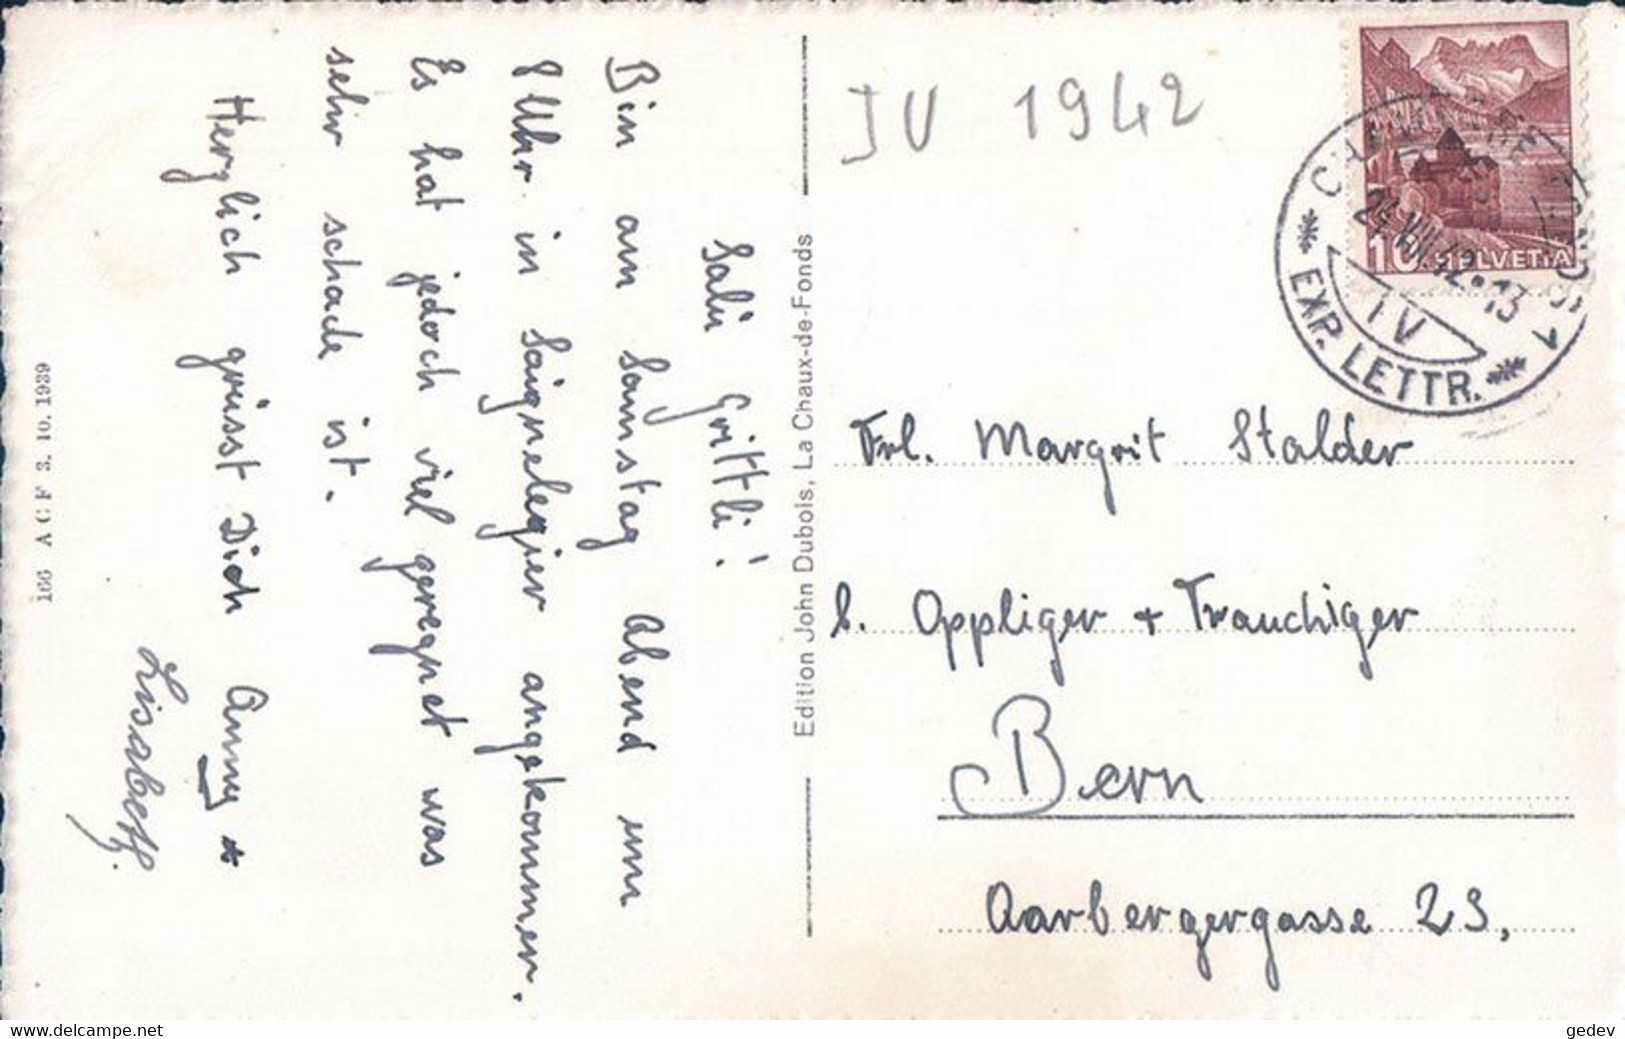 Salü Grittli!
Bin am Samstag Abend um
8 Uhr in Saignelegier angekommen.
Es hat jedoch viel geregnet was
sehr schade ist.
Herzlich grüsst Dich Anny *
Lisabeth.
166 A C F 3. 10. 1939
Edition John Dubois, La Chaux-de-Fonds
JU 1942
10 HELVETIA
24.VIII.42.13
IV
* EXP. LETTR. *
Frl. Margrit Stalder
b. Oppliger + Trauchiger
Bern
Aarbergergasse 23,
www.delcampe.net
gedev